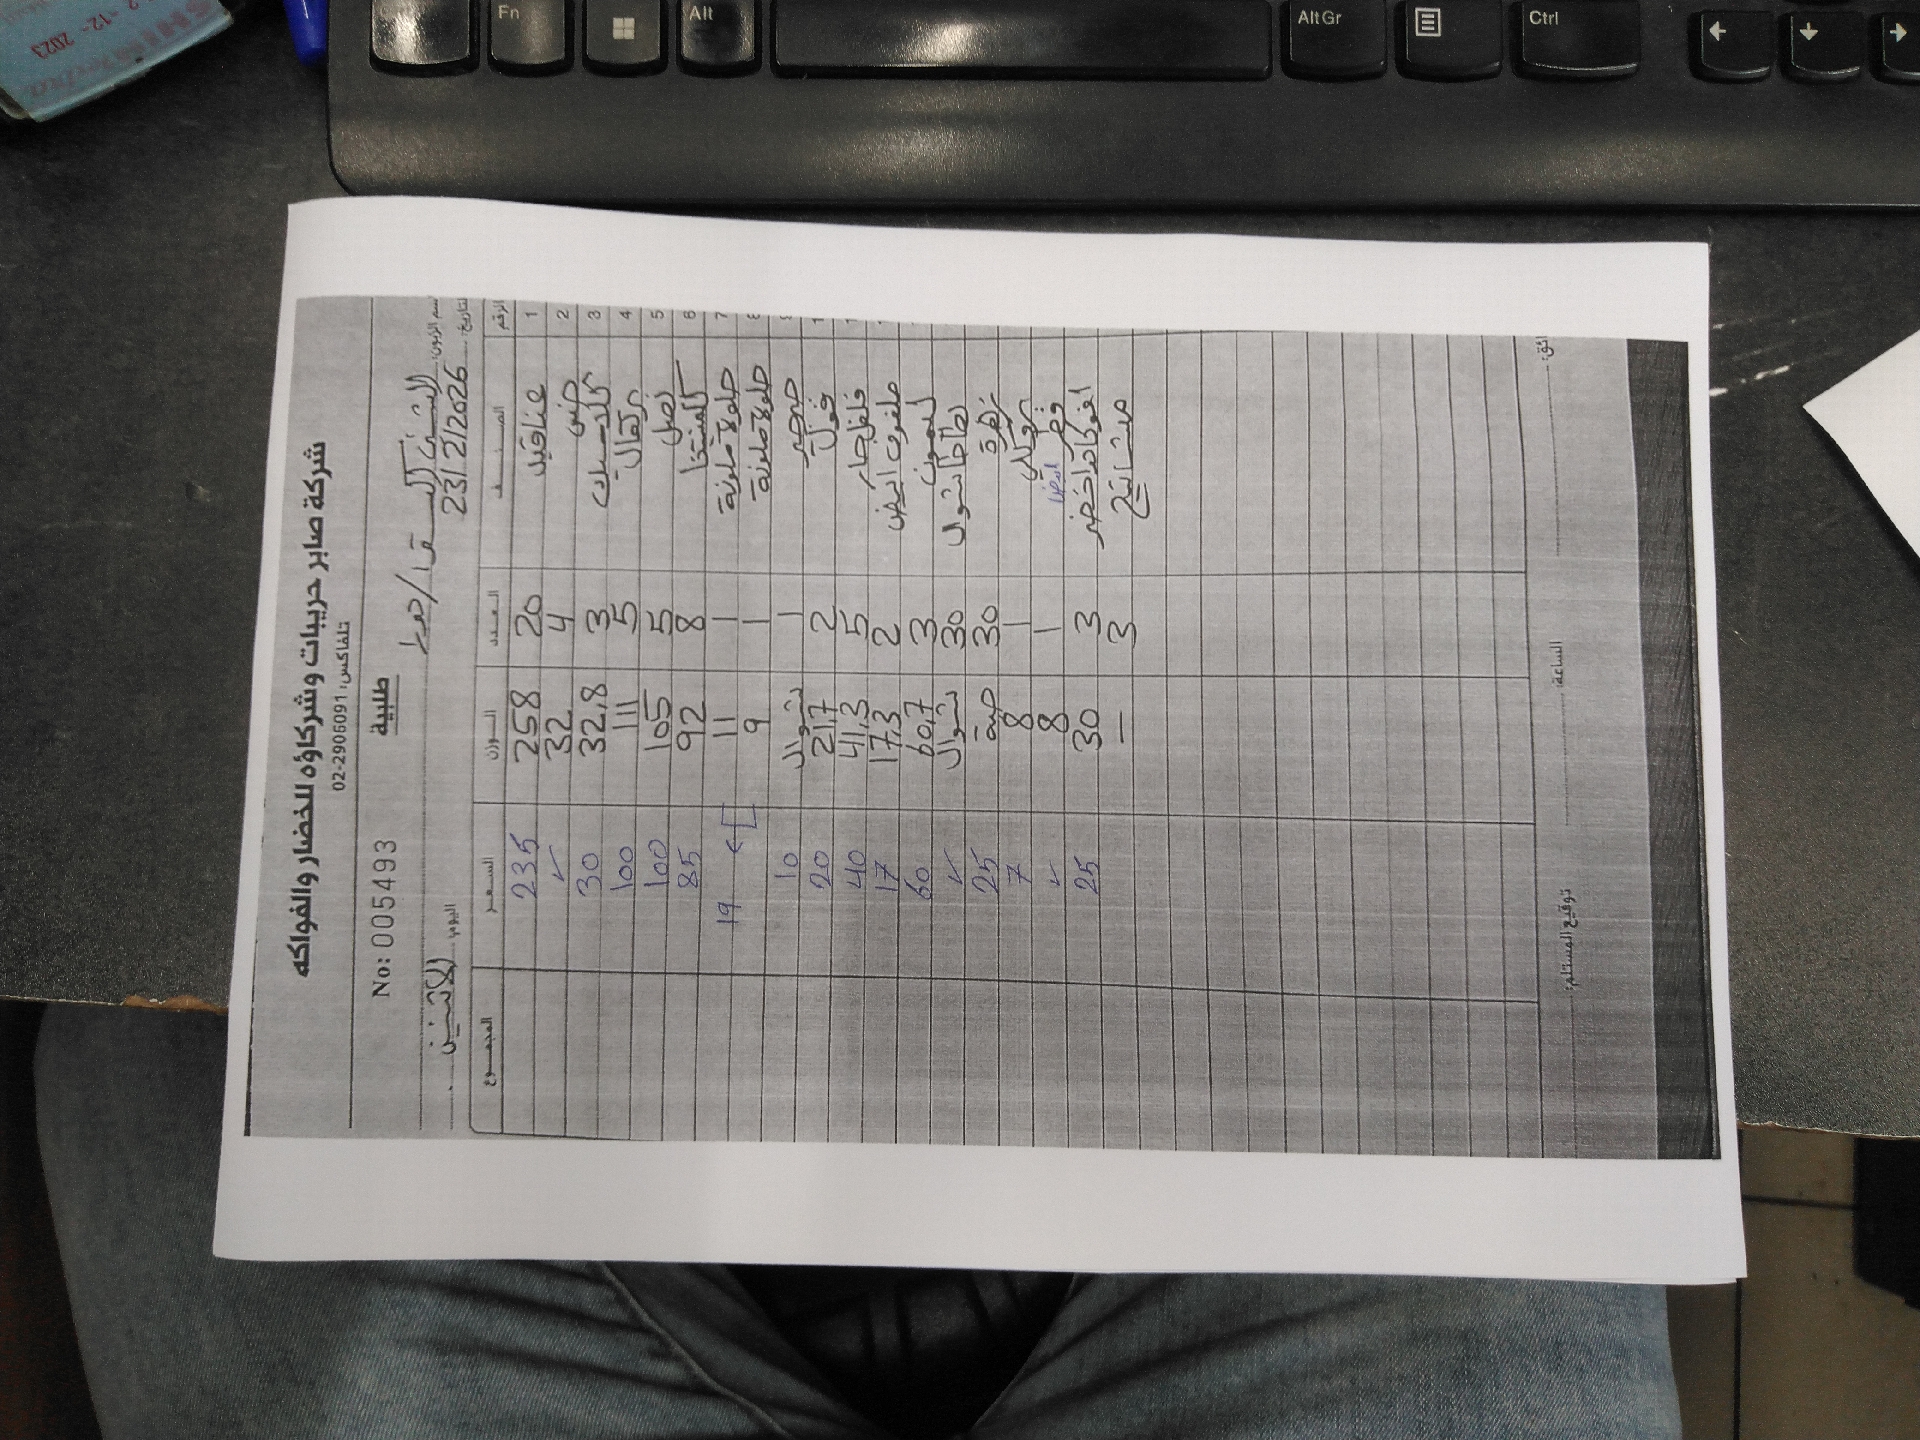 شركة صابر حريبات وشركاؤه للخضار والفواكه
تلفاكس: 02-2906091
طلبية
No: 005493
اليوم: الاثنين
التاريخ: 23/2/2026
الرقم الصنف العدد الوزن السعر المجموع
1 عناقيد 20 258 235
2 خس 4 32 ✓
3 3 32,8 30
4 برتقال 5 111 100
5 بصل 5 105 100
6 كلمنتينا 8 92 85
7 حلوة ملونة 1 11 19
8 حلوة ملونة 1 9
9 1 شوال 10
2 21,7 20
فلفل حار 5 41,3 40
ملفوف ابيض 2 17,3 17
ليمون 3 60,7 60
بطاطا شوال 30 شوال ✓
زهرة 30 حبة 25
بروكلي 1 8 7
ابيض 1 8 ✓
افوكادو اخضر 3 30 25
مشاتيح 3 —
توقيع المستلم:
الساعة:
Fn
Alt
Alt Gr
Ctrl
2-12-2023